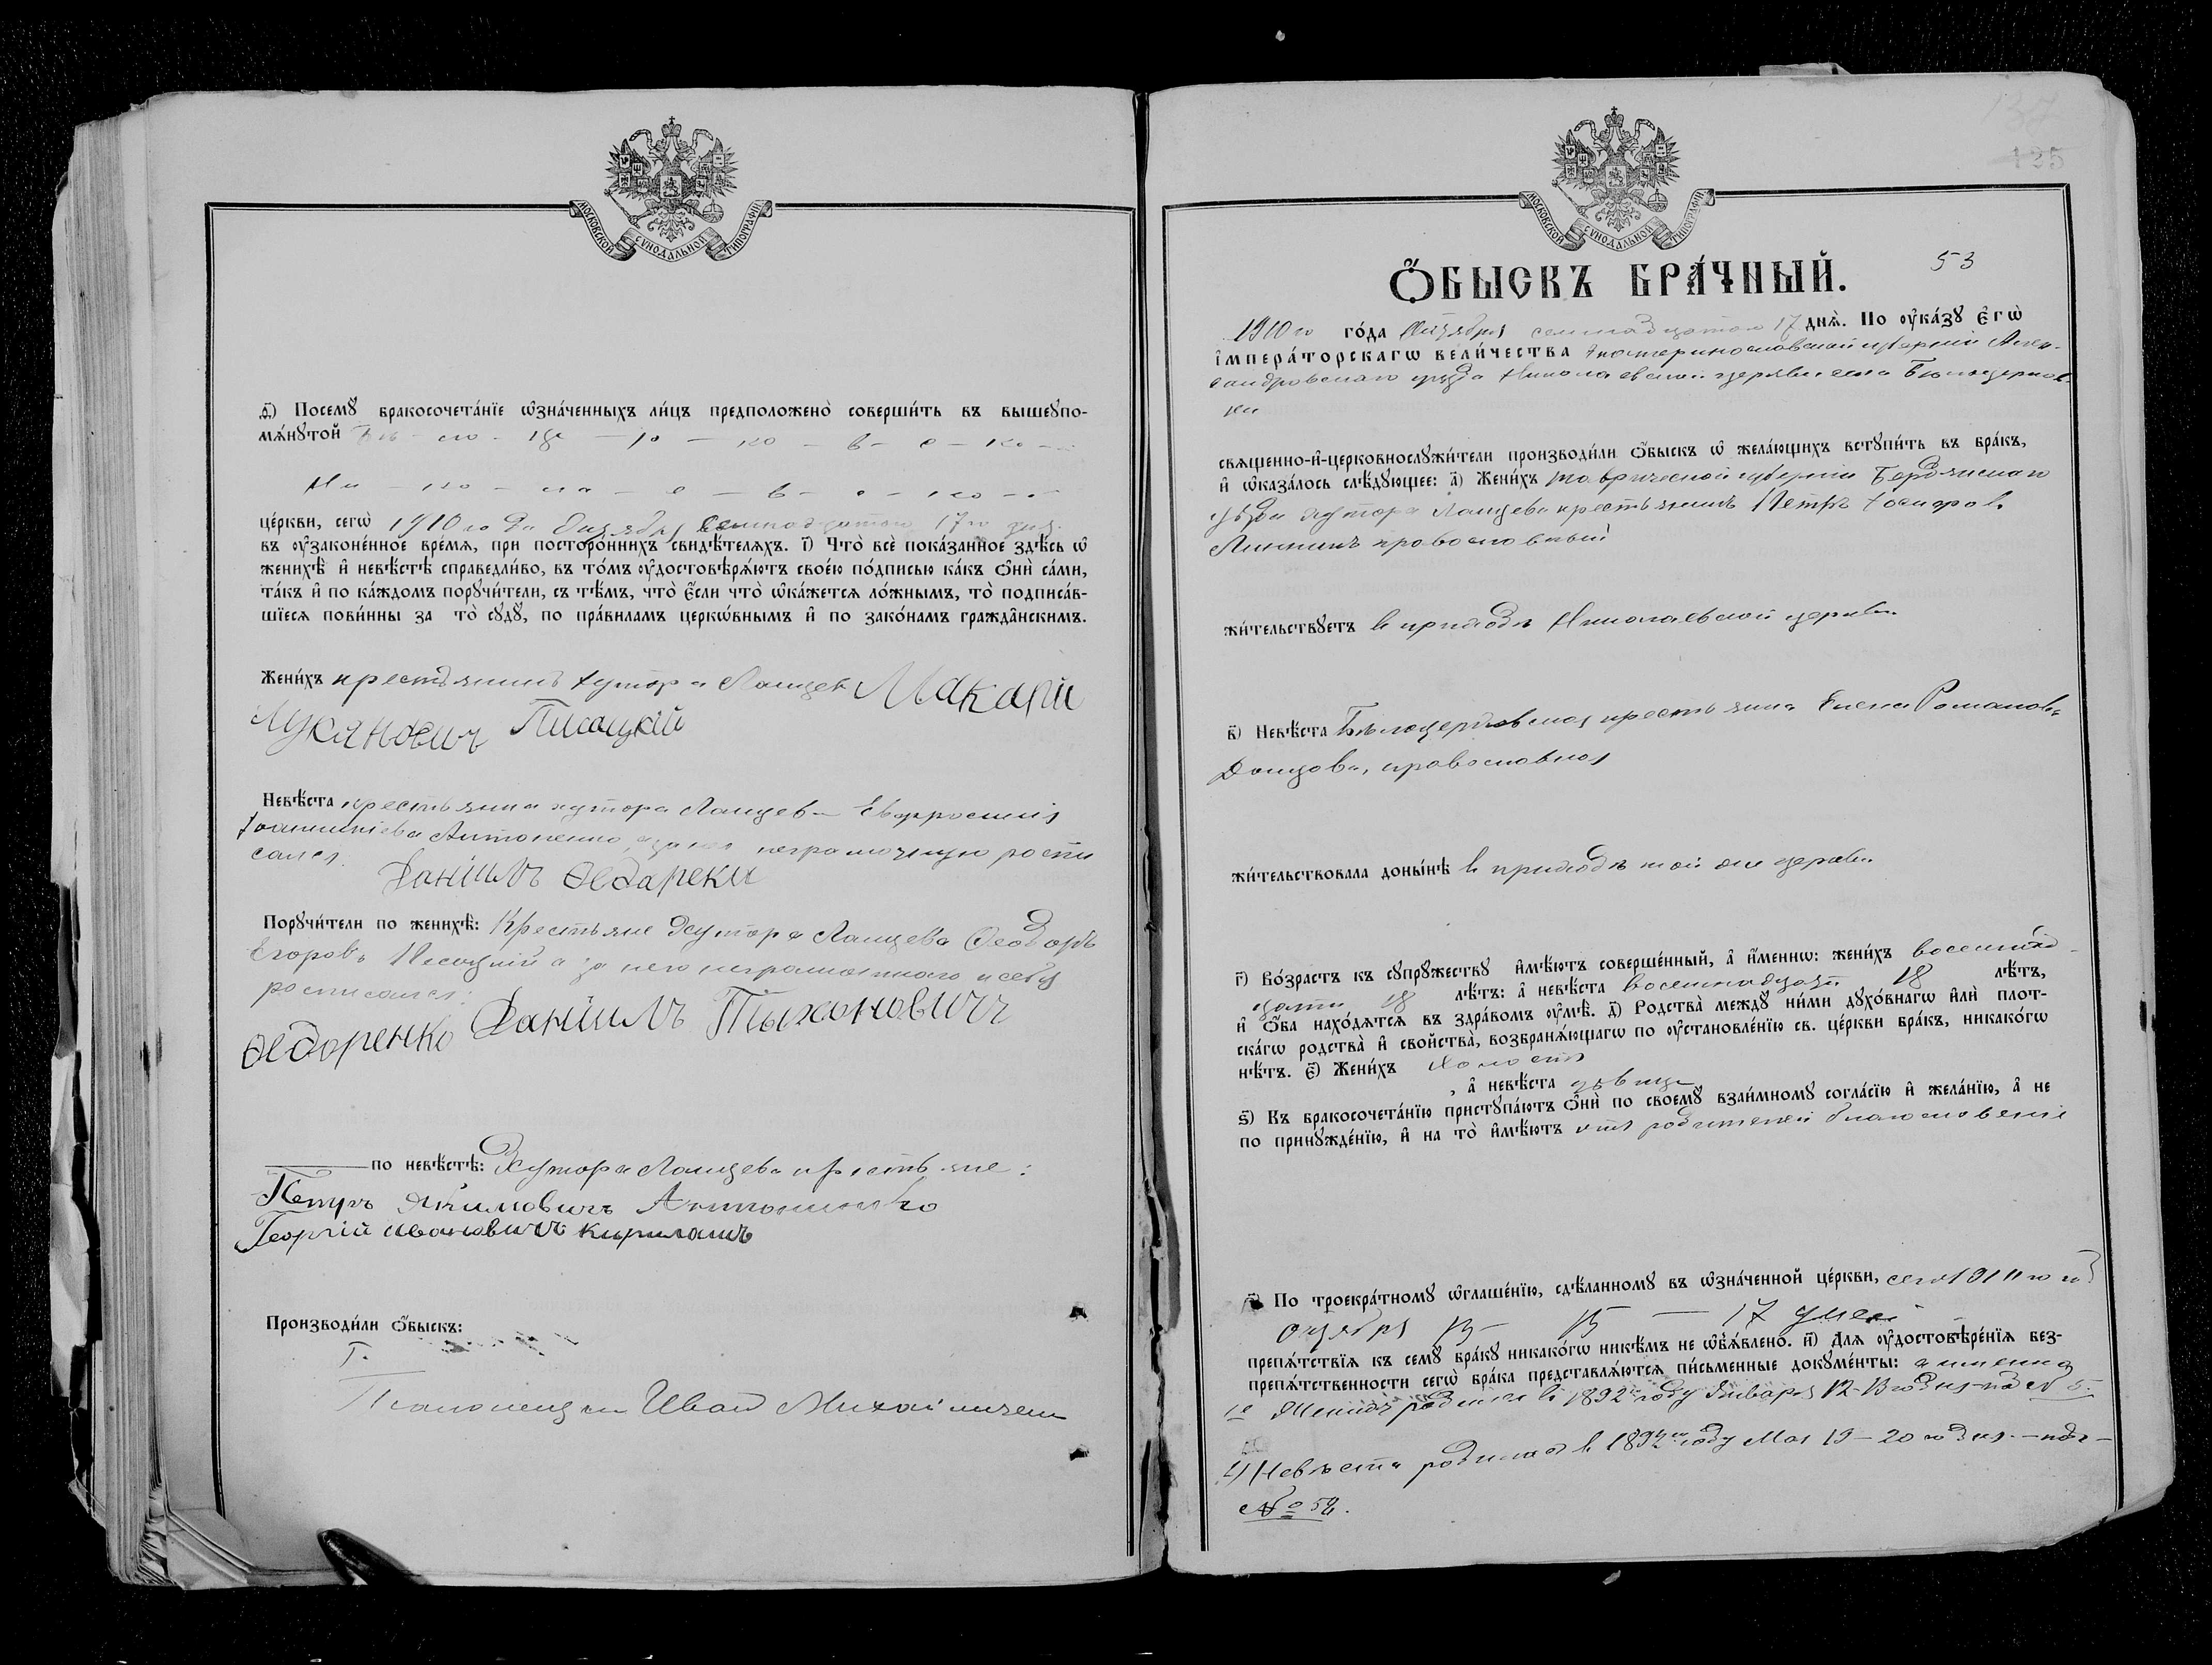 МОСКОВСКОЙ СУНОДАЛЬНОЙ ТИПОГРАФІИ
д҃) Посемꙋ бракосочета́нїе ѡ҆зна́ченныхъ ли́цъ предположено̀ соверши́ть въ вышеꙋпо-
мѧ́нꙋтой Бѣ - ло - це - р - ко - в - с - ко -
Ни - ко - ла - е - в - с - ко -
це́ркви, сегѡ̀ 1910 го да Октября Семнадцатого 17го дня.
въ ᲂу҆зако́ненное вре́мѧ, при посторо́ннихъ свидѣ́телѧхъ. і҃) Что̀ всѐ пока́занное здѣ́сь ѡ҆
женихѣ̀ и҆ невѣ́стѣ справедли́во, въ то́мъ ᲂу҆достовѣрѧ́ютъ свое́ю по́дписью ка́къ ѻ҆нѝ са́ми,
та́къ и҆ по ка́ждомъ порꙋчи́тели, съ тѣ́мъ, что̀ є҆́сли что̀ ѡ҆ка́жетсѧ ло́жнымъ, то̀ подписа́в-
шїесѧ пови́нны за то̀ сꙋдꙋ̀, по пра́виламъ церко́внымъ и҆ по зако́намъ гражда́нскимъ.
Жени́хъ крестьянинъ хутора Ланцева Макарій
Лукяновичъ Писоцкій
Невѣ́ста крестьянка хутора Ланцева Евфросинія
Іоанникіева Антоненко, а за нея неграмотную роспи
сался Даніилъ Федаренки
Порꙋчи́тели по женихѣ̀: Крестьяне хутора Ланцева Ѳеодоръ
Егоровъ Песоцкій а за него неграмотного и себя
росписался:
Федоренко Даніилъ Тыхоновичъ
по невѣ́стѣ: Хутора Ланцева крестьяне:
Петръ Якимовичъ Антоненко
Георгій Ивановичъ Кирилашъ
Производи́ли ѻ҆́быскъ:
Иван Михайличенко
125
МОСКОВСКОЙ СУНОДАЛЬНОЙ ТИПОГРАФІИ
53
Ѻ҆́БЫСКЪ БРА́ЧНЫЙ.
1910 го го́да Октября семнадцатого 17 днѧ̀. По ᲂу҆ка́зꙋ є҆гѡ̀
і҆мпера́торскагѡ вели́чества Екатеринославской губерніи Алек-
сандровскаго уѣзда Николаевской церкви села Бѣлоцерков
ки
свѧще́нно-и҆-церковнослꙋжи́тели производи́ли ѻ҆́быскъ ѡ҆ жела́ющихъ встꙋпи́ть въ бра́къ,
и҆ ѡ҆каза́лось слѣ́дꙋющее: а҃) Жени́хъ Таврической губерніи Бердянскаго
уѣзда хутора Ланцева крестьянинъ Петръ Іосифовъ
православный
жи́тельствꙋетъ въ приходѣ Николаевской церкви
в҃) Невѣ́ста Бѣлоцерковская крестьянка Елена Романова
Донцова, православная
жи́тельствовала доны́нѣ въ приходѣ той же церкви
г҃) Во́зрастъ къ сꙋпрꙋ́жествꙋ и҆мѣ́ютъ соверше́нный, а҆ и҆́меннѡ: жени́хъ восемнад-
цати 18 лѣ́тъ: а҆ невѣ́ста восемнадцати 18 лѣ́тъ,
и҆ ѻ҆́ба нахо́дѧтсѧ въ здра́вомъ ᲂу҆мѣ̀. д҃) Родства̀ междꙋ ни́ми дꙋхо́внагѡ и҆лѝ плот-
ска́гѡ родства̀ и҆ сво́йства, возбранѧ́ющагѡ по ᲂу҆становле́нїю св. це́ркви бра́къ, никако́гѡ
нѣ́тъ. є҃) Жени́хъ холостъ
, а҆ невѣ́ста дѣвица
ѕ҃) Къ бракосочета́нїю пристꙋпа́ютъ ѻ҆нѝ по своемꙋ̀ взаи́мномꙋ согла́сїю и҆ жела́нїю, а҆ не
по принꙋжде́нїю, и҆ на то̀ и҆мѣ́ютъ отъ родителей благословеніе
По троекра́тномꙋ ѡ҆глаше́нїю, сдѣ́ланномꙋ въ ѡ҆зна́ченной це́ркви, сего 1910 го год
октября 17 дней
препѧ́тствїѧ къ семꙋ̀ бра́кꙋ никако́гѡ никѣ́мъ не ѡ҆б̾ѧ́влено. и҃) Длѧ ᲂу҆достовѣре́нїѧ без-
препѧ́тственности сегѡ̀ бра́ка представлѧ́ютсѧ пи́сьменные докꙋме́нты: а именно
1е Женихъ родился въ 1892 году Января 12-13 го дня под № 5.
2) Невѣста родилась въ 1892 году Мая 19-20 го дня. - под -
№ 52.